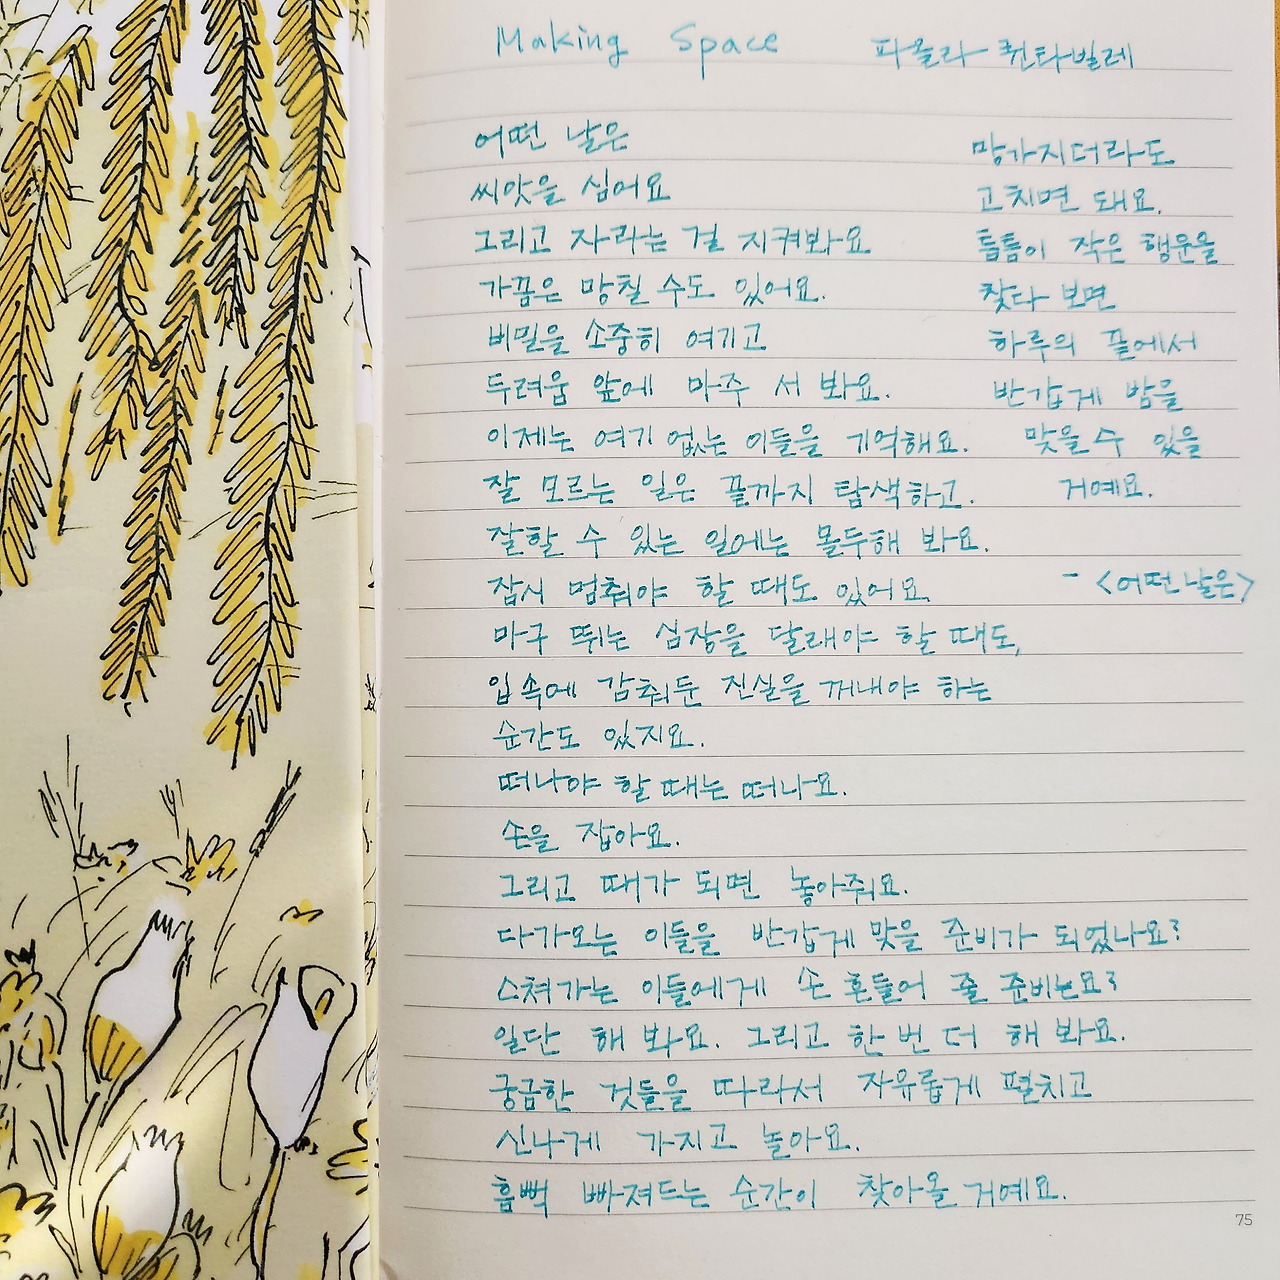 Making Space 파올라 퀸타발레
어떤 날은
씨앗을 심어요
그리고 자라는 걸 지켜봐요
가끔은 망칠 수도 있어요.
비밀을 소중히 여기고
두려움 앞에 마주 서 봐요.
이제는 여기 없는 이들을 기억해요.
잘 모르는 일은 끝까지 탐색하고.
잘할 수 있는 일에는 몰두해 봐요.
잠시 멈춰야 할 때도 있어요.
마구 뛰는 심장을 달래야 할 때도,
입 속에 감춰둔 진실을 꺼내야 하는
순간도 있지요.
떠나야 할 때는 떠나요.
손을 잡아요.
그리고 때가 되면 놓아줘요.
다가오는 이들을 반갑게 맞을 준비가 되었나요?
스쳐가는 이들에게 손 흔들어 줄 준비는요?
일단 해 봐요. 그리고 한 번 더 해 봐요.
궁금한 것들을 따라서 자유롭게 펼치고
신나게 가지고 놀아요.
흠뻑 빠져드는 순간이 찾아올 거예요.
망가지더라도
고치면 돼요.
틈틈이 작은 행운을
찾다 보면
하루의 끝에서
반갑게 밤을
맞을 수 있을
거예요.
- <어떤 날은>
75